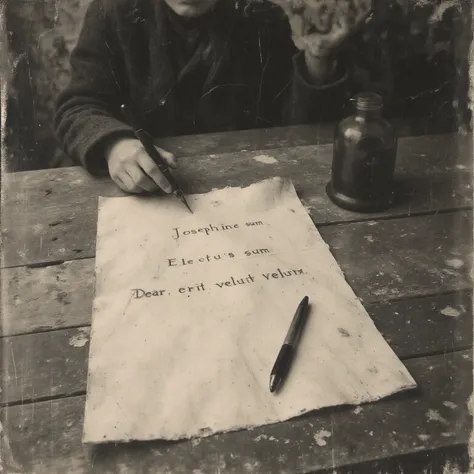 Josephine sum
Electu's sum
Dear, erit velut velurx.